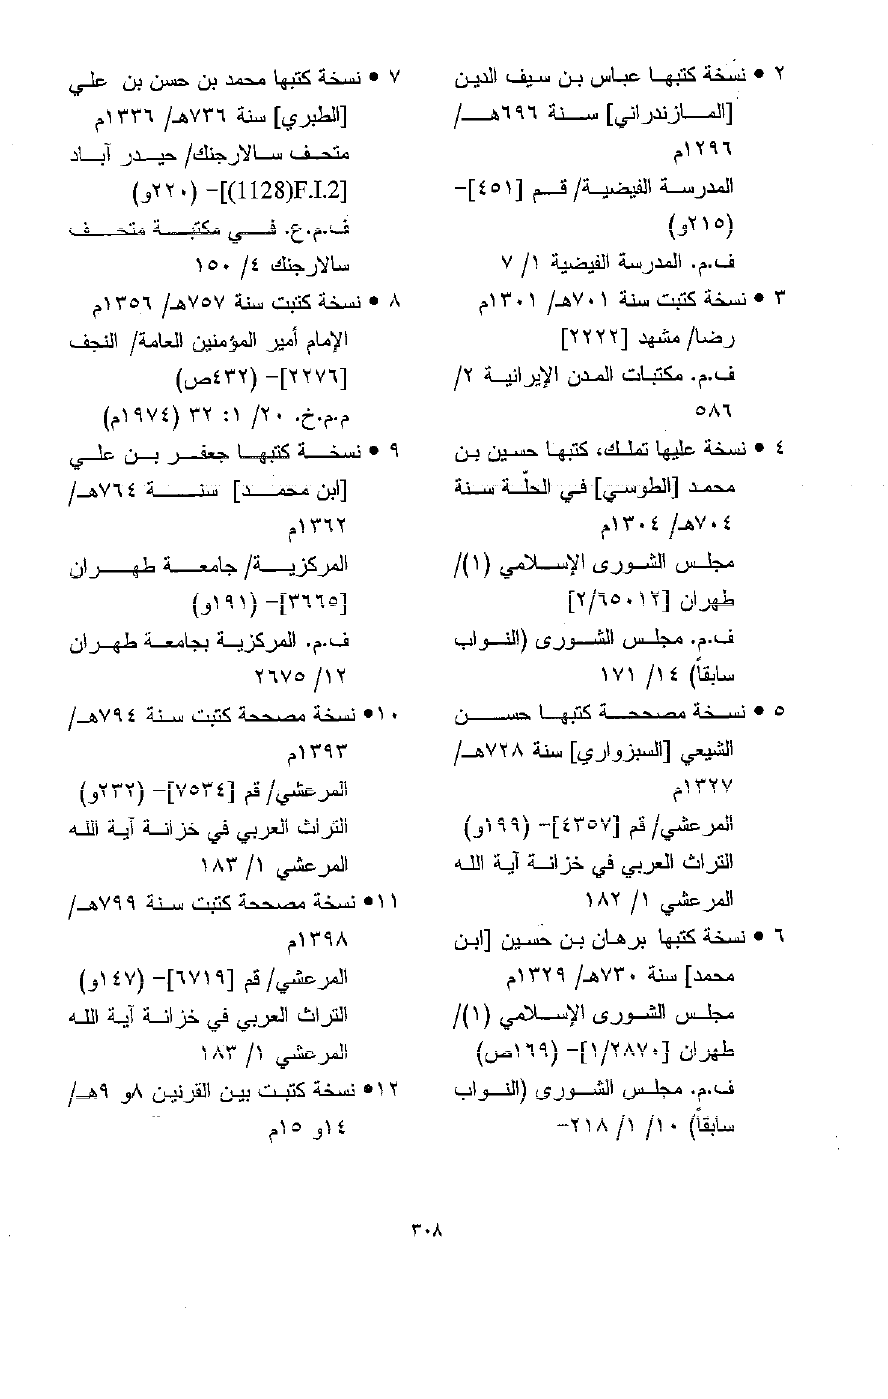 ٢ • نسخة كتبها عباس بن سيف الدين
[المازندراني] سنة ٦٩٦هـ/
١٢٩٦م
المدرسة الفيضية/ قم [٤٥١]-
(٢١٥و)
ف.م. المدرسة الفيضية ١/ ٧
٣ • نسخة كتبت سنة ٧٠١هـ/ ١٣٠١م
رضا/ مشهد [٢٢٢٢]
ف.م. مكتبات المدن الإيرانية ٢/
٥٨٦
٤ • نسخة عليها تملك، كتبها حسين بن
محمد [الطوسي] في الحلّة سنة
٧٠٤هـ/ ١٣٠٤م
مجلس الشورى الإسلامي (١)/
طهران [٢/٦٥٠١٢]
ف.م. مجلس الشورى (النواب
سابقاً) ١٤/ ١٧١
٥ • نسخة مصححة كتبها حسن
الشيعي [السبزواري] سنة ٧٢٨هـ/
١٣٢٧م
المرعشي/ قم [٤٣٥٧]- (١٩٩و)
التراث العربي في خزانة آية الله
المرعشي ١/ ١٨٢
٦ • نسخة كتبها برهان بن حسين [ابن
محمد] سنة ٧٣٠هـ/ ١٣٢٩م
مجلس الشورى الإسلامي (١)/
طهران [١/٢٨٧٠]- (١٦٩ص)
ف.م. مجلس الشورى (النواب
سابقاً) ١٠/ ١/ ٢١٨-
٧ • نسخة كتبها محمد بن حسن بن علي
[الطبري] سنة ٧٣٦هـ/ ١٣٣٦م
متحف سالارجنك/ حيدر آباد
[(1128)F.I.2]- (٢٢٠و)
ف.م.ع. في مكتبة متحف
سالارجنك ٤/ ١٥٠
٨ • نسخة كتبت سنة ٧٥٧هـ/ ١٣٥٦م
الإمام أمير المؤمنين العامة/ النجف
[٢٢٧٦]- (٤٣٢ص)
م.م.خ. ٢٠/ ١: ٣٢ (١٩٧٤م)
٩ • نسخة كتبها جعفر بن علي
[ابن محمد] سنة ٧٦٤هـ/
١٣٦٢م
المركزية/ جامعة طهران
[٣٦٦٥]- (١٩١و)
ف.م. المركزية بجامعة طهران
١٢/ ٢٦٧٥
١٠• نسخة مصححة كتبت سنة ٧٩٤هـ/
١٣٩٣م
المرعشي/ قم [٧٥٣٤]- (٢٣٢و)
التراث العربي في خزانة آية الله
المرعشي ١/ ١٨٣
١١• نسخة مصححة كتبت سنة ٧٩٩هـ/
١٣٩٨م
المرعشي/ قم [٦٧١٩]- (١٤٧و)
التراث العربي في خزانة آية الله
المرعشي ١/ ١٨٣
١٢• نسخة كتبت بين القرنين ٨و ٩هـ/
١٤و ١٥م
٣٠٨